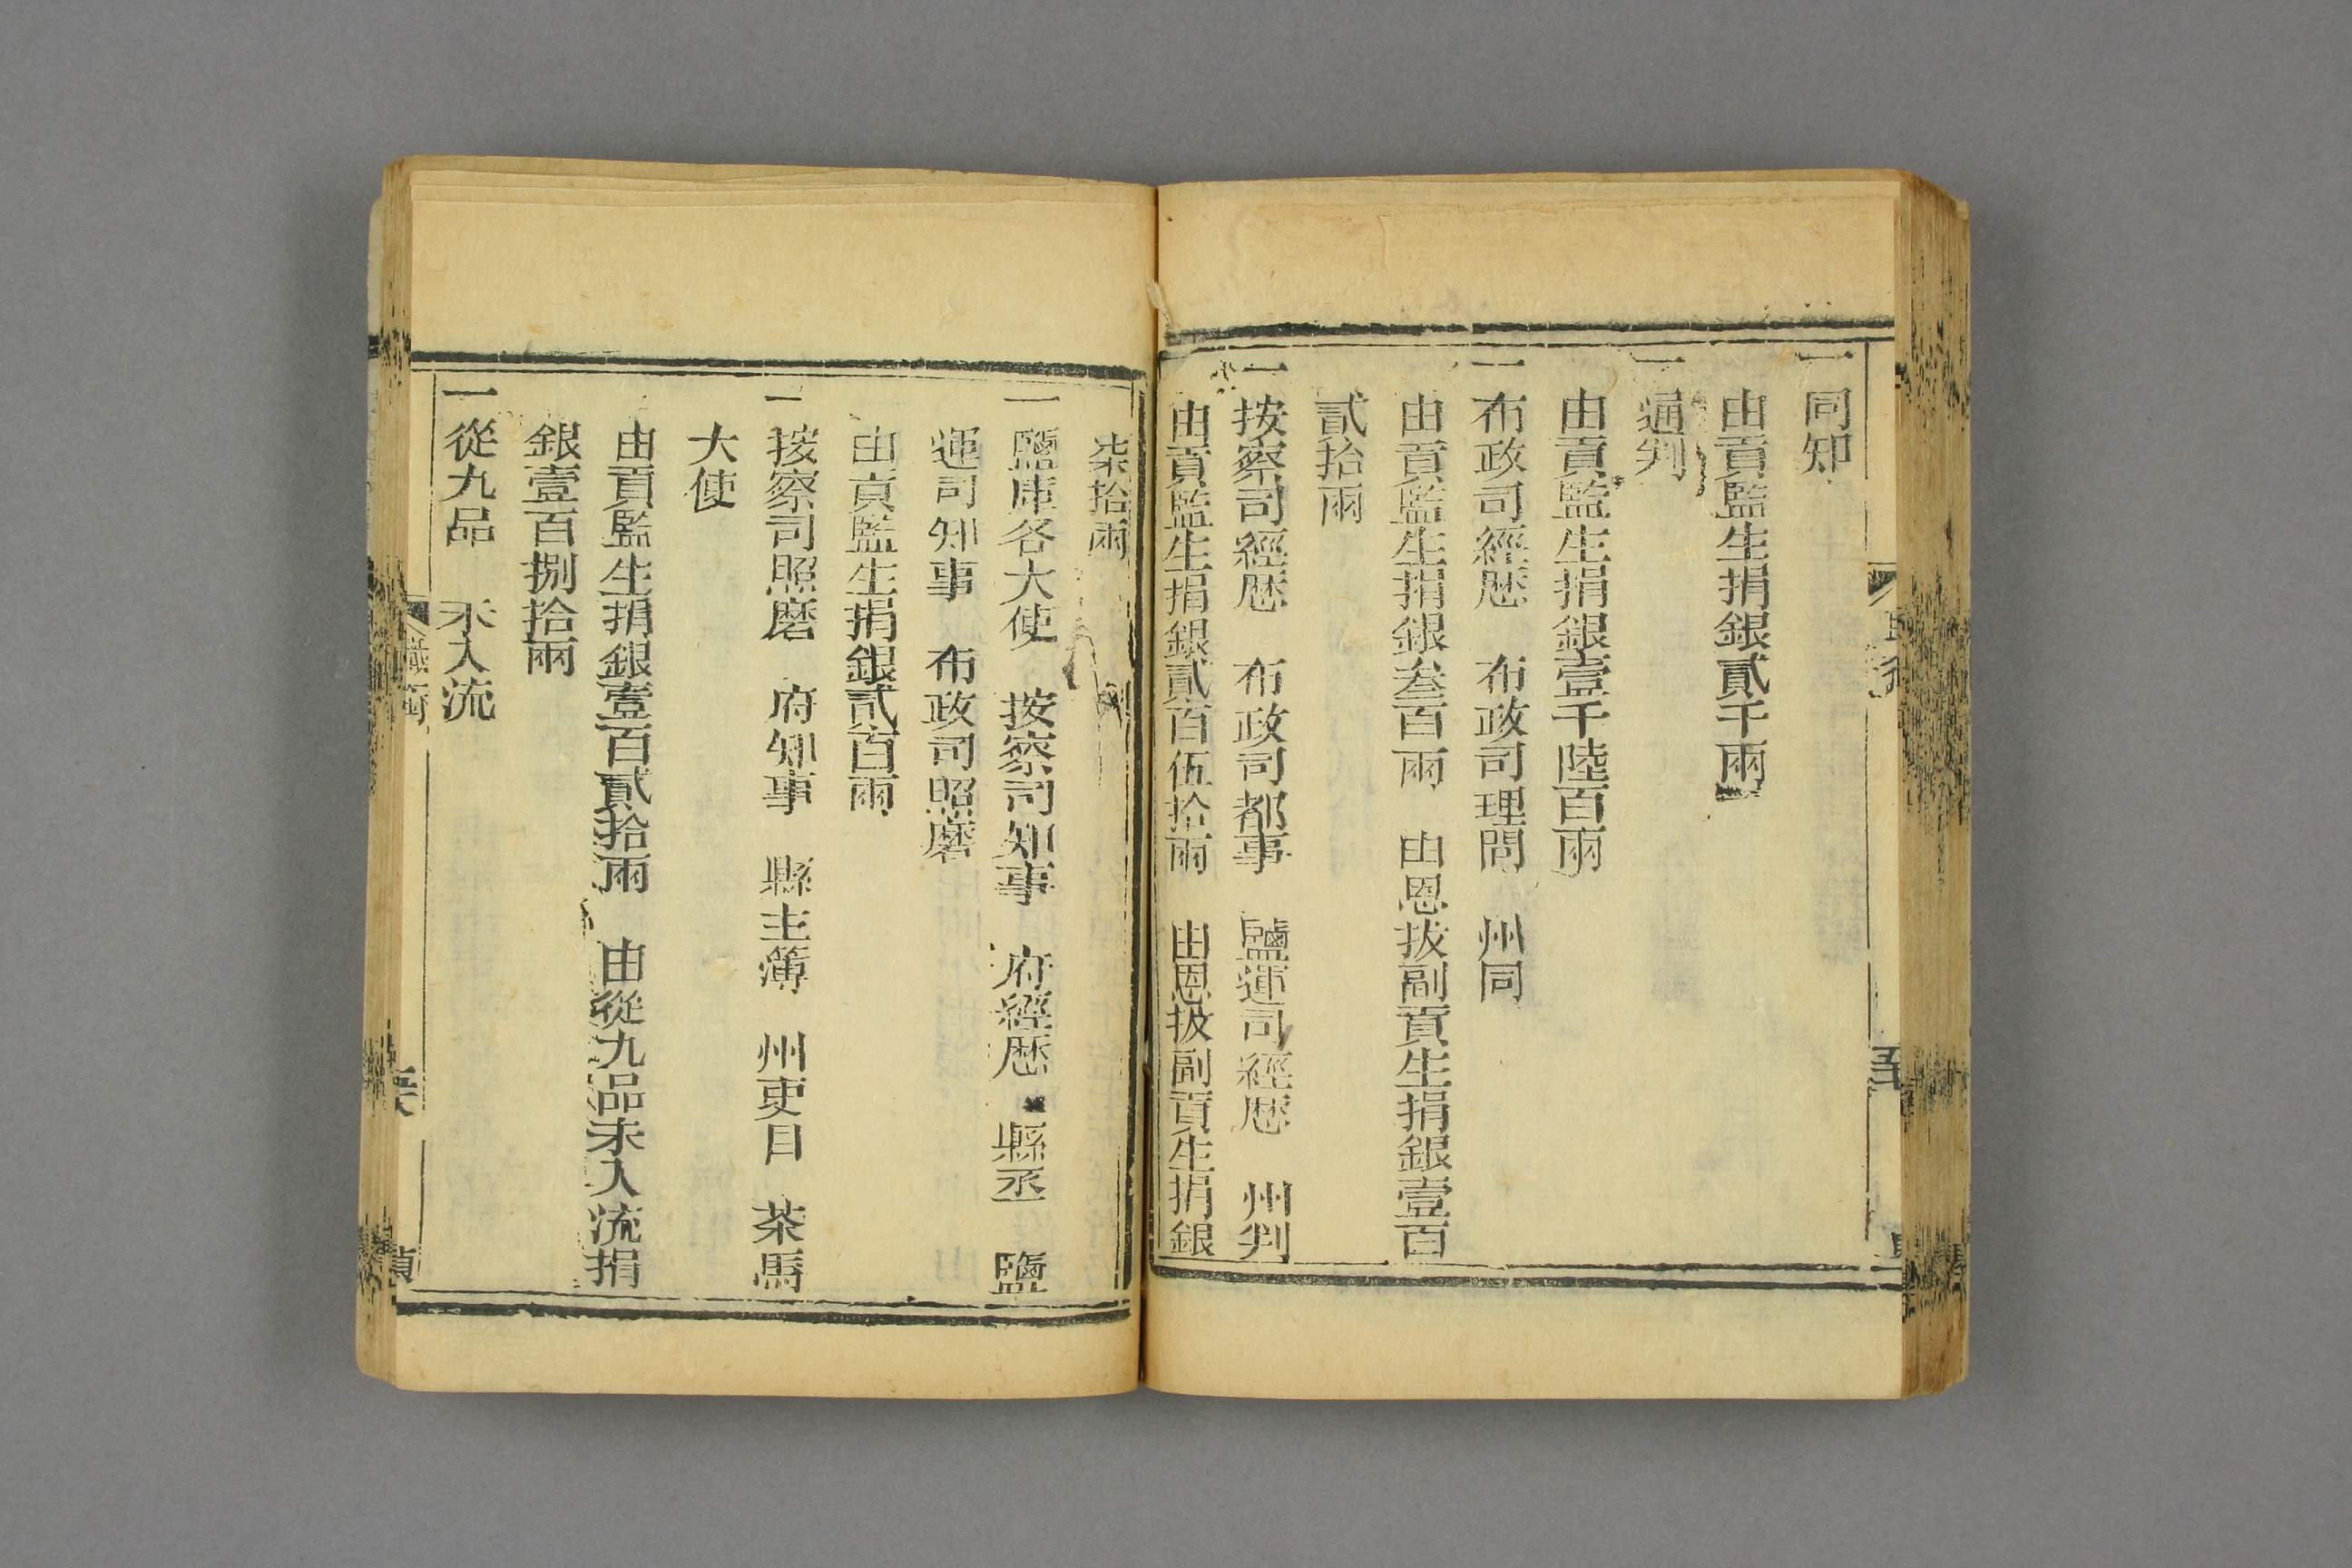 一同知
由貢監生捐銀貳千兩
一通判
由貢監生捐銀壹千陸百兩
一布政司經歷　布政司理問　州同
由貢監生捐銀叁百兩　由恩拔副貢生捐銀壹百
貳拾兩
一按察司經歷　布政司都事　鹽運司經歷　州判
由貢監生捐銀貳百伍拾兩　由恩拔副貢生捐銀
柒拾兩
一鹽庫各大使　按察司知事　府經歷　縣丞　鹽
運司知事　布政司照磨
由貢監生捐銀貳百兩
一按察司照磨　府知事　縣主簿　州吏目　茶馬
大使
由貢監生捐銀壹百貳拾兩　由從九品未入流捐
銀壹百捌拾兩
一從九品　未入流